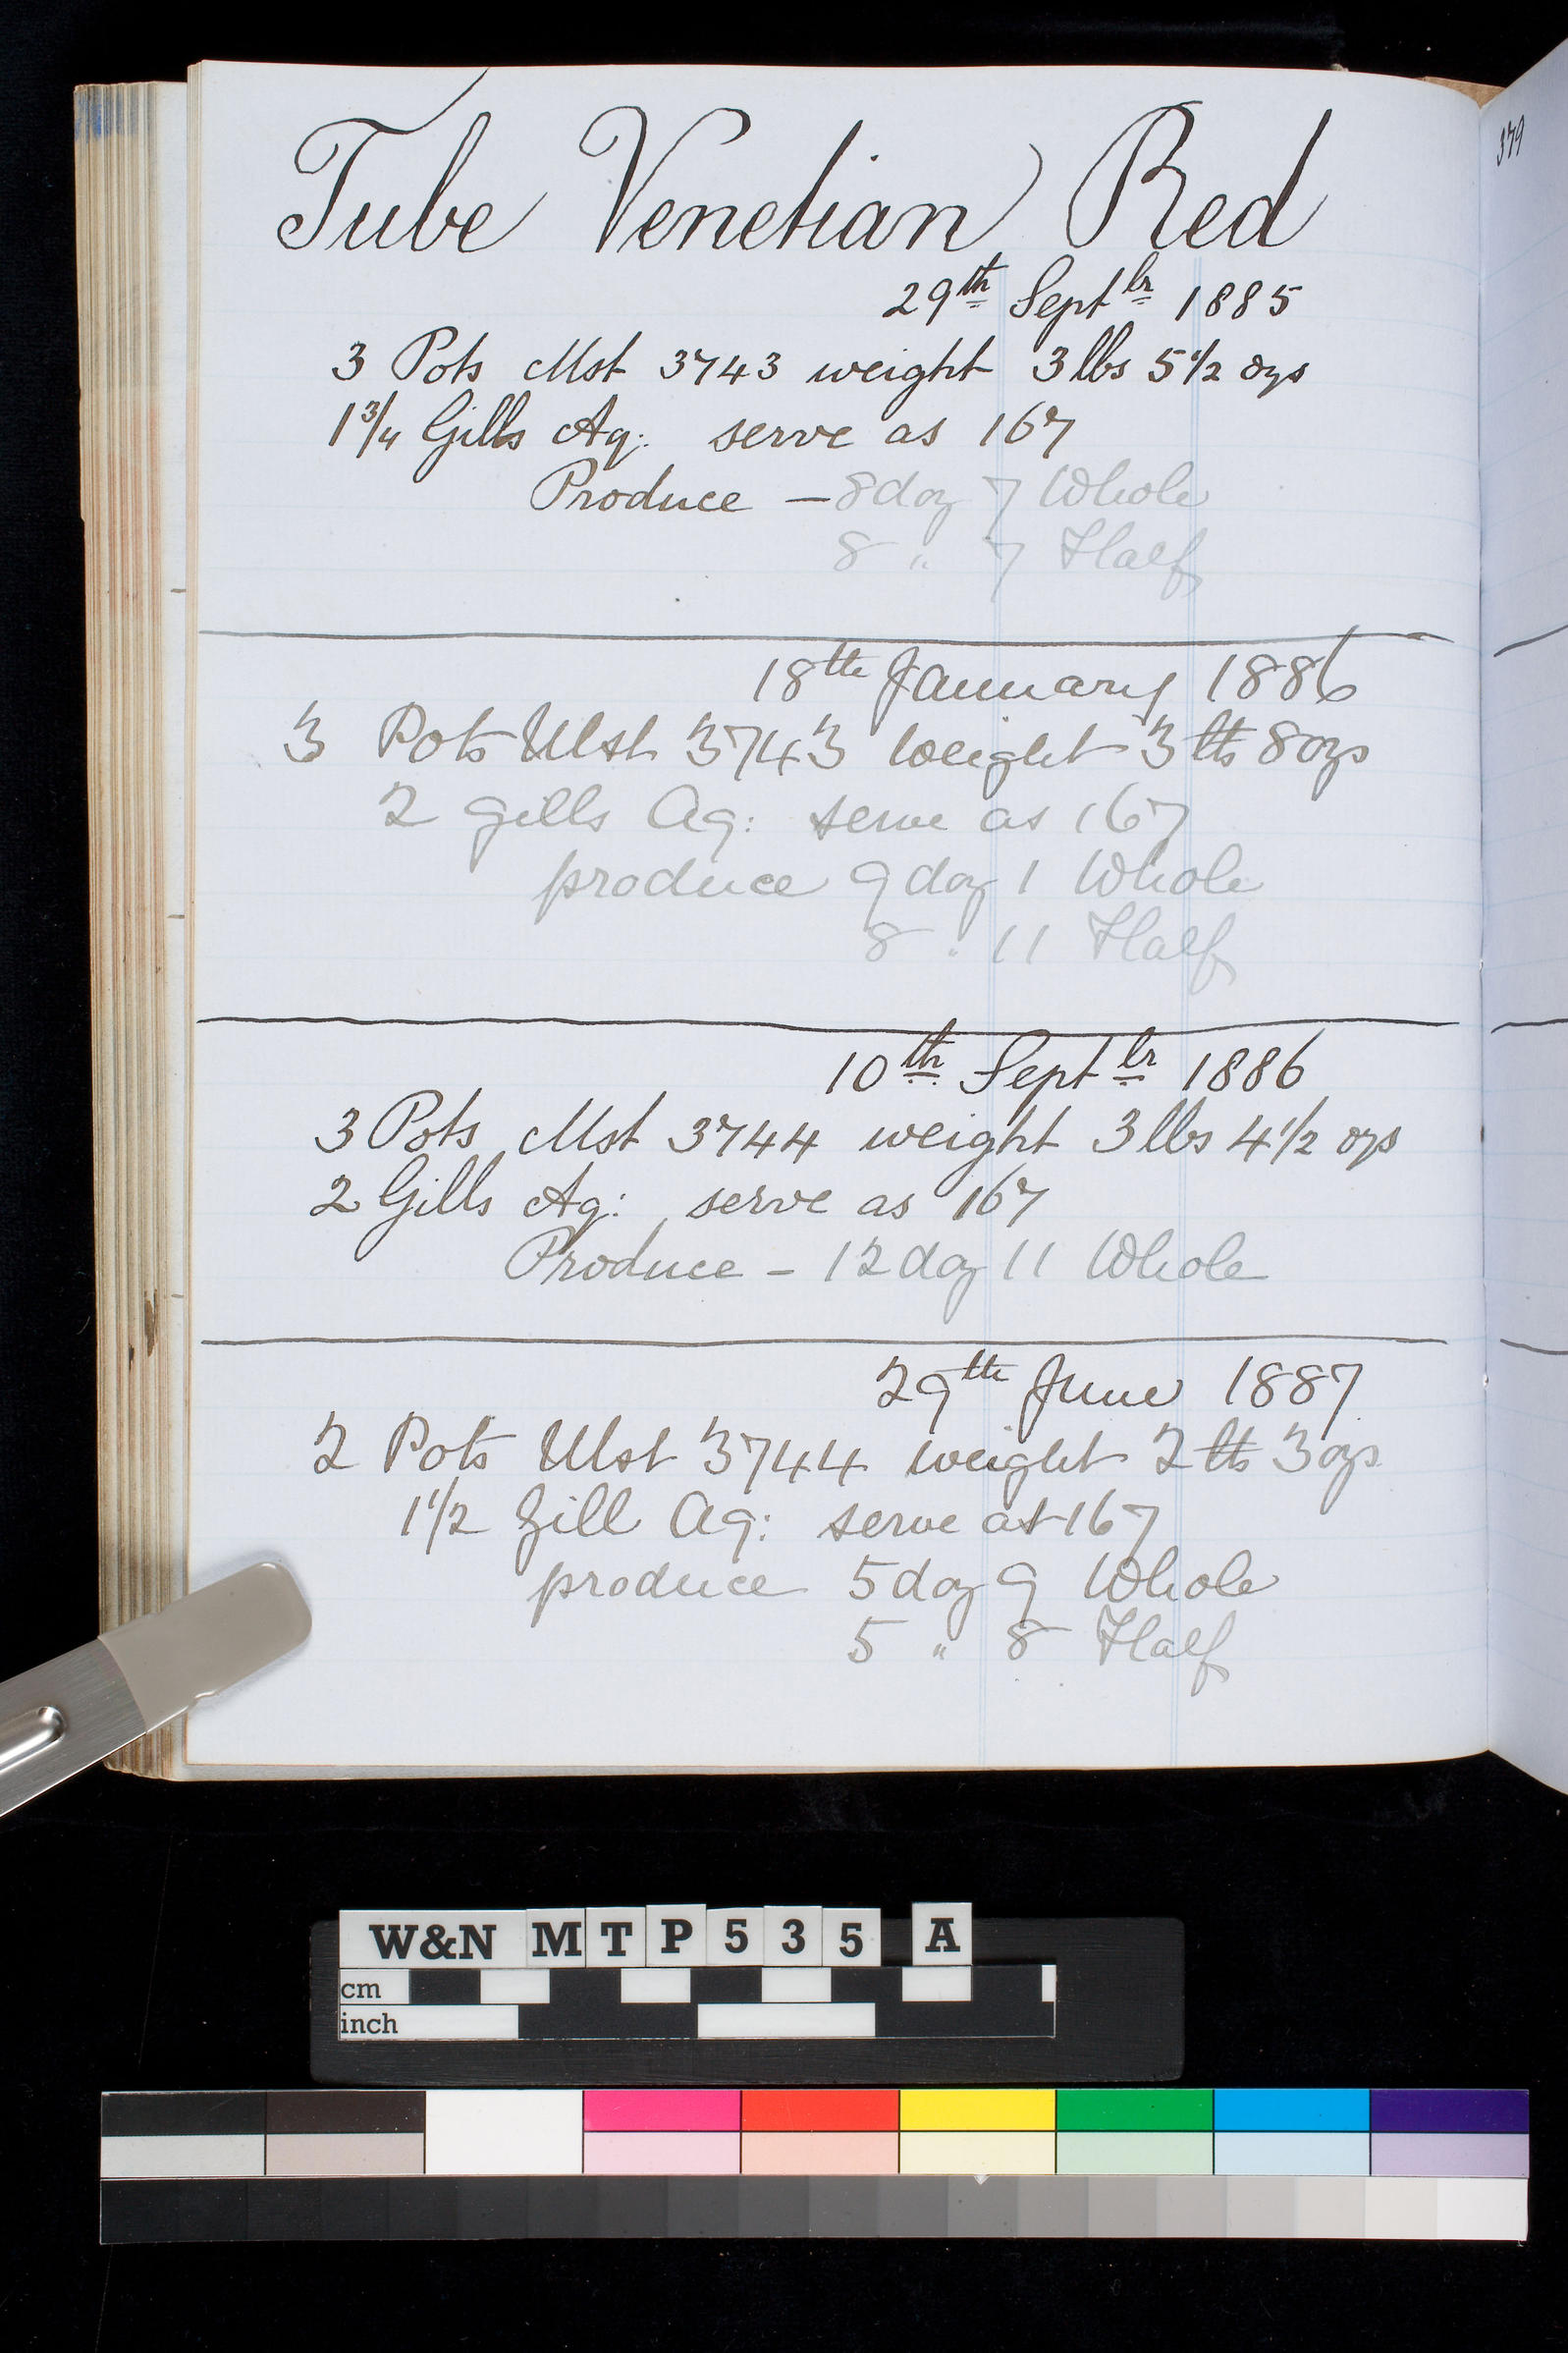 Tube Venetian Red
379
29th Septbr 1885
3 Pots Mst 3743 weight 3 lbs 5 1/2 ozs
1 3/4 Gills Aq: serve as 167
Produce — 8 doz 7 Whole
8 " 7 Half
18th January 1886
3 Pots Mst 3743 weight 3 lb 8 ozs
2 gills Aq: serve as 167
produce 9 doz 1 Whole
8 " 11 Half
10th Septbr 1886
3 Pots Mst 3744 weight 3 lbs 4 1/2 ozs
2 Gills Aq: serve as 167
Produce – 12 doz 11 Whole
29th June 1887
2 Pots Mst 3744 weight 2 lb 3 ozs
1 1/2 Gill Aq: serve as 167
produce 5 doz 9 Whole
5 " 8 Half
W&N MTP535 A
cm
inch